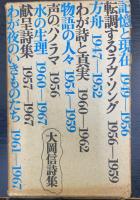 記憶と現在 1949~1956
転調するラヴ・ソング 1956~1959
方舟 1947~1952
わが詩と真実 1960~1962
物語の人々 1951~1959
声のパノラマ 1956
水の生理 1960~1967
献呈詩集 1957~1967
わが夜のいきものたち 1961~1967
大岡信詩集